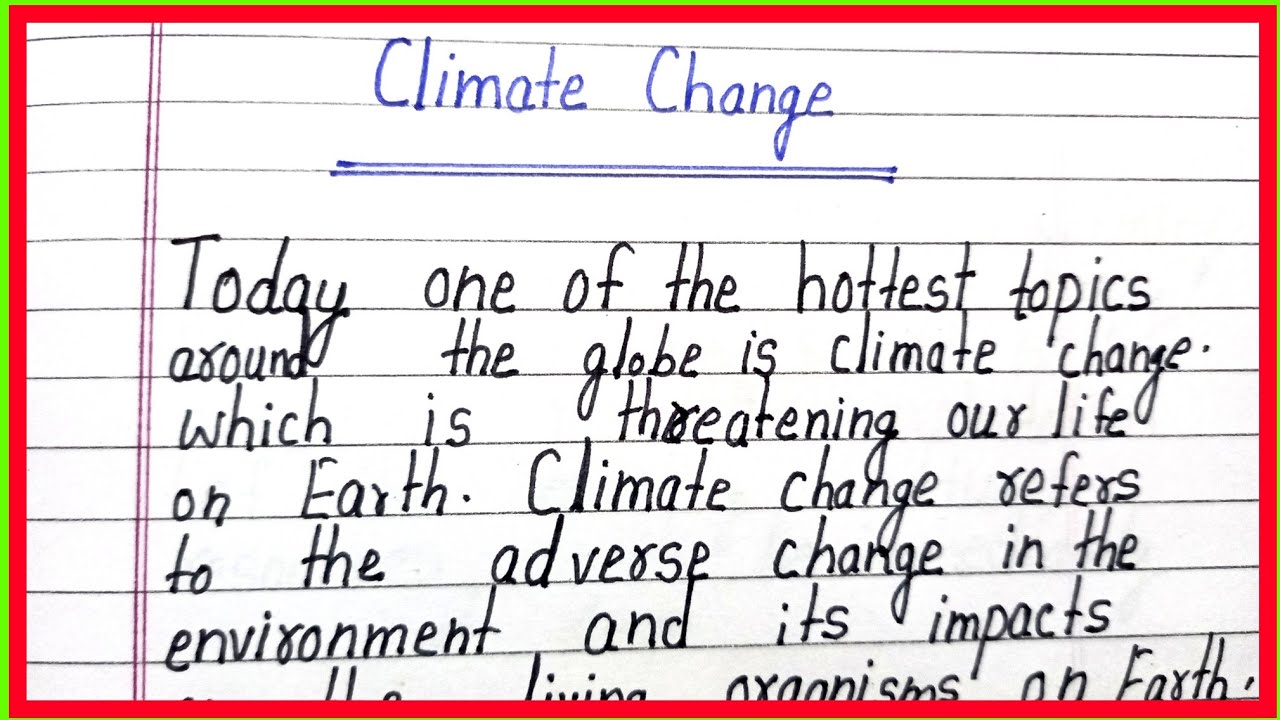 Climate Change
Today one of the hottest topics
around the globe is climate change.
which is threatening our life
on Earth. Climate change refers
to the adverse change in the
environment and its impacts
on the living organisms on Earth.